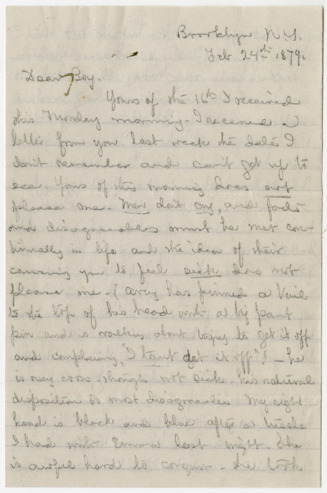 Brooklyn N.Y.
Feb 24th 1879.
Dear Boy.
Yours of the 16th I received
this Monday morning. I received a
letter from you last week the date I
don't remember and can't get up to
see. Yours of this morning does not
please me. Men don't cry, and facts
and disagreeables must be met con-
tinually in life and the idea of their
causing you to feel sick does not
please me. (Carey has pinned a veil
to the top of his head with a big pant
pin and is walking about trying to get it off
and complaining, "I tant get it off"! - he
is very cross, though not sick. His natural
disposition is most disagreeable. My right
hand is black and blue after a tussle
I had with Emma last night. She
is awful hard to conquer - she took